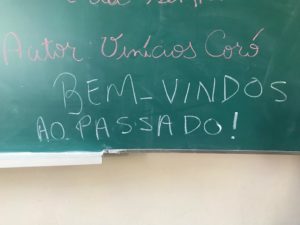 Autor Vinícios Coró
BEM-VINDOS
AO PASSADO!